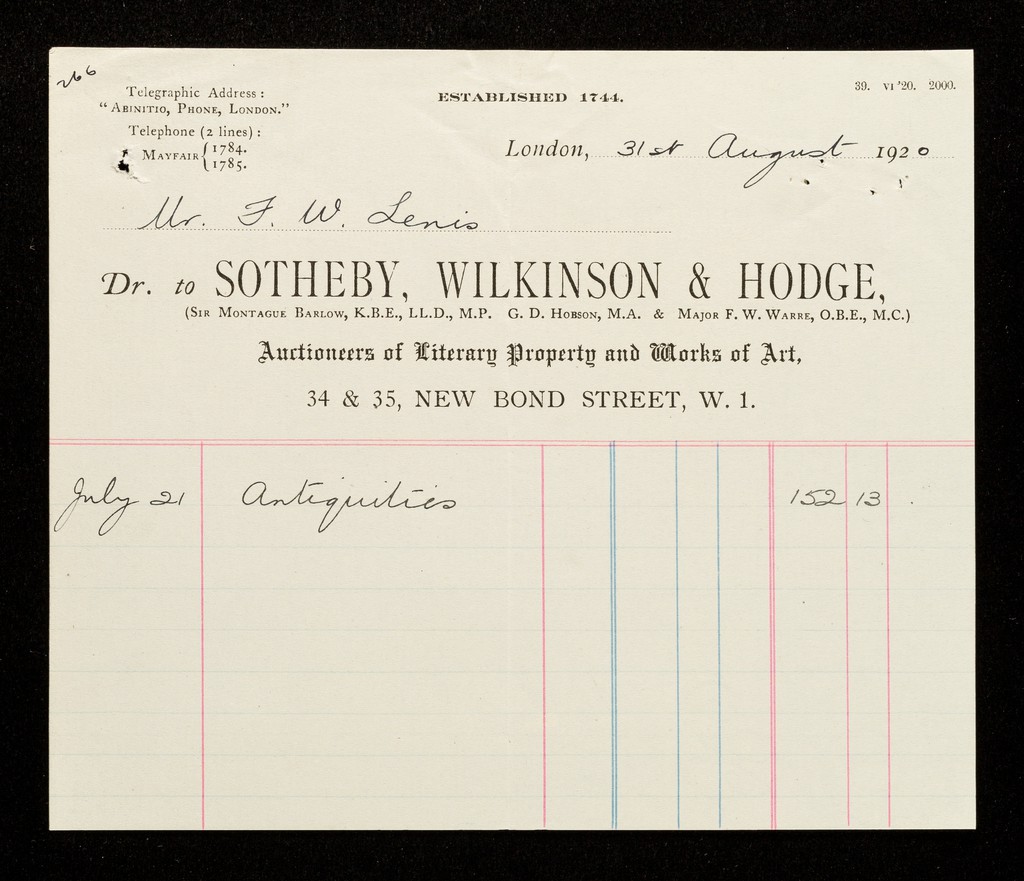 266
Telegraphic Address:
"ABINITIO, PHONE, LONDON."
Telephone (2 lines):
MAYFAIR { 1784.
1785.
ESTABLISHED 1744.
39. VI '20. 2000.
London, 31st August 1920
Mr. F. W. Lewis
Dr. to SOTHEBY, WILKINSON & HODGE,
(SIR MONTAGUE BARLOW, K.B.E., LL.D., M.P. G. D. HOBSON, M.A. & MAJOR F. W. WARRE, O.B.E., M.C.)
Auctioneers of Literary Property and Works of Art,
34 & 35, NEW BOND STREET, W. 1.
July 21 Antiquities 152 13 .